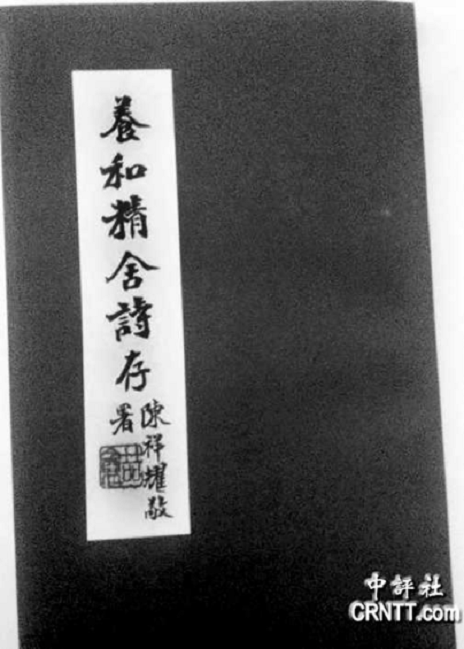 養和精舍詩存
陳祥耀敬
署
中評社
CRNTT.com